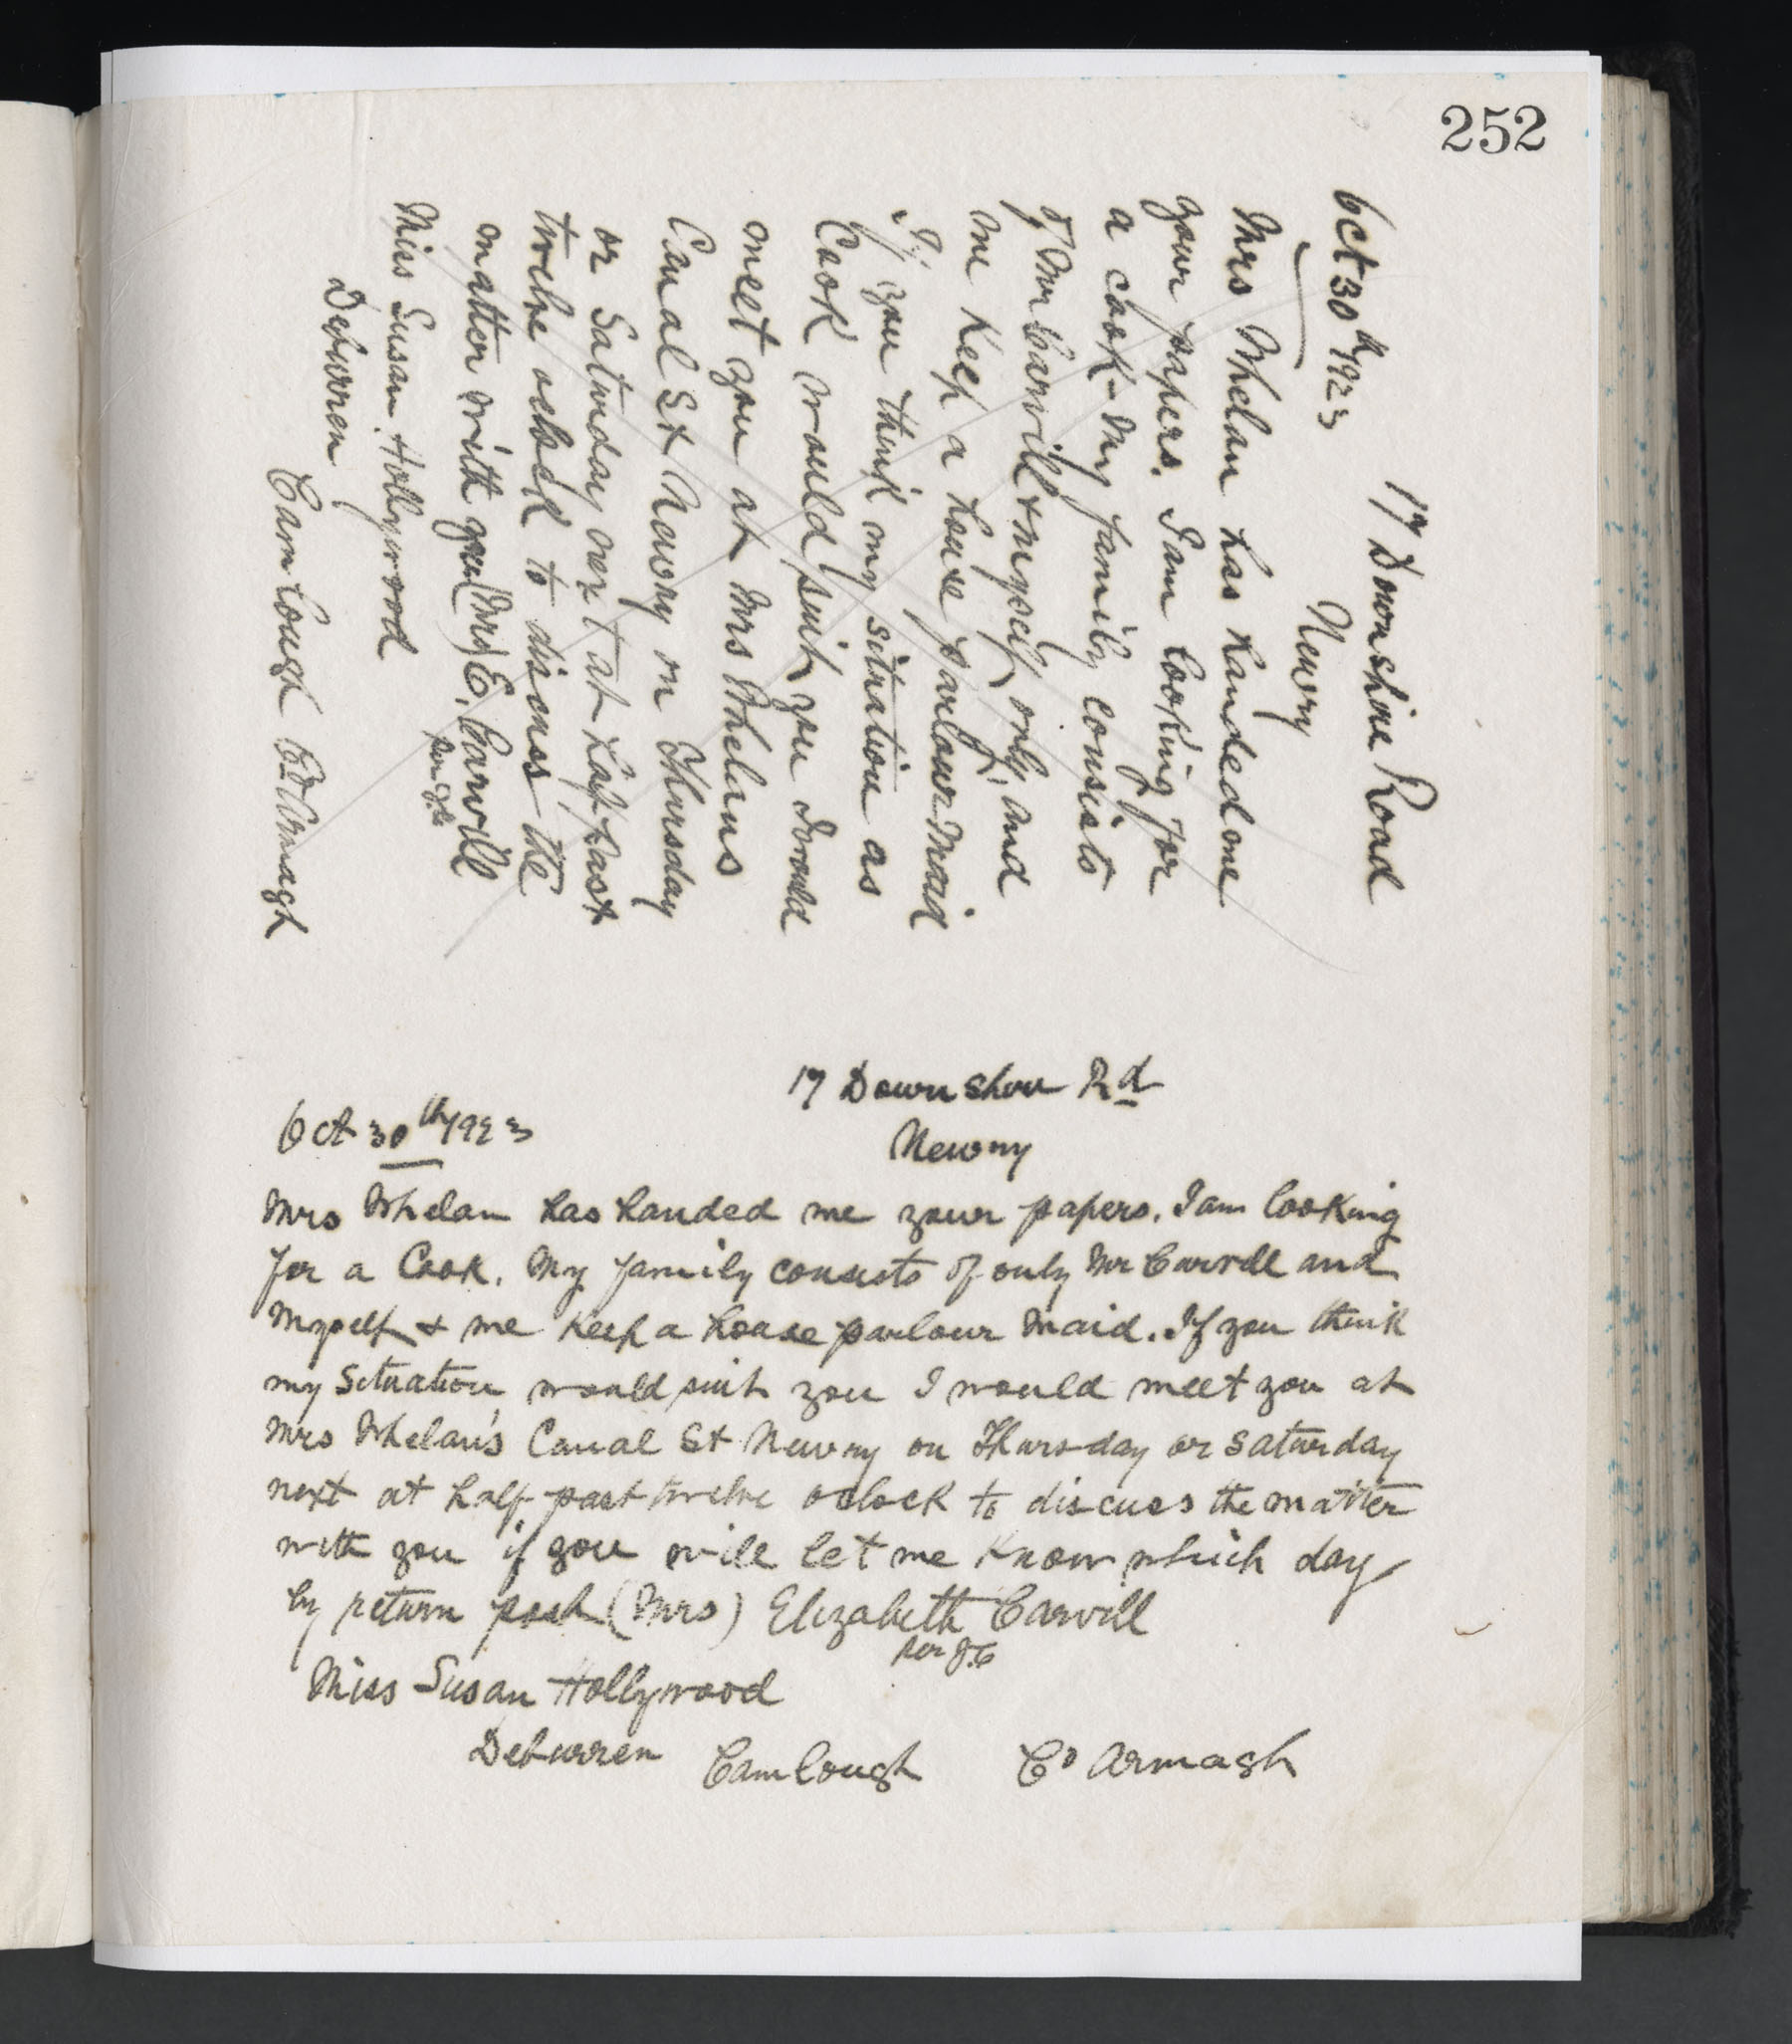 252
17 Downshire Road
Newry
Oct 30th 1923
Mrs Whelan has handed me
your papers. I am looking for
a cook - My family consists
of Mr Carvill & myself only, and
we keep a house parlour maid
If you think my situation as
Cook would suit you I would
meet you at Mrs Whelans
Canal St Newry on Thursday
or Saturday next at half past
twelve oclock to discuss the
matter with you (Mrs) E. Carvill
Miss Susan Hollywood
Deburren
Camlough Co Armagh
17 Downshire Rd
Oct 30th 1923
Newry
Mrs Whelan has handed me your papers. I am looking
for a Cook. My family consists of only Mr Carvill and
Myself & we keep a house parlour maid. If you think
my situation would suit you I would meet you at
Mrs Whelan's Canal St Newry on Thursday or Saturday
next at half past twelve oclock to discuss the matter
with you if you will let me know which day
by return post (Mrs) Elizabeth Carvill
per J.C
Miss Susan Hollywood
Deburren Camlough Co Armagh